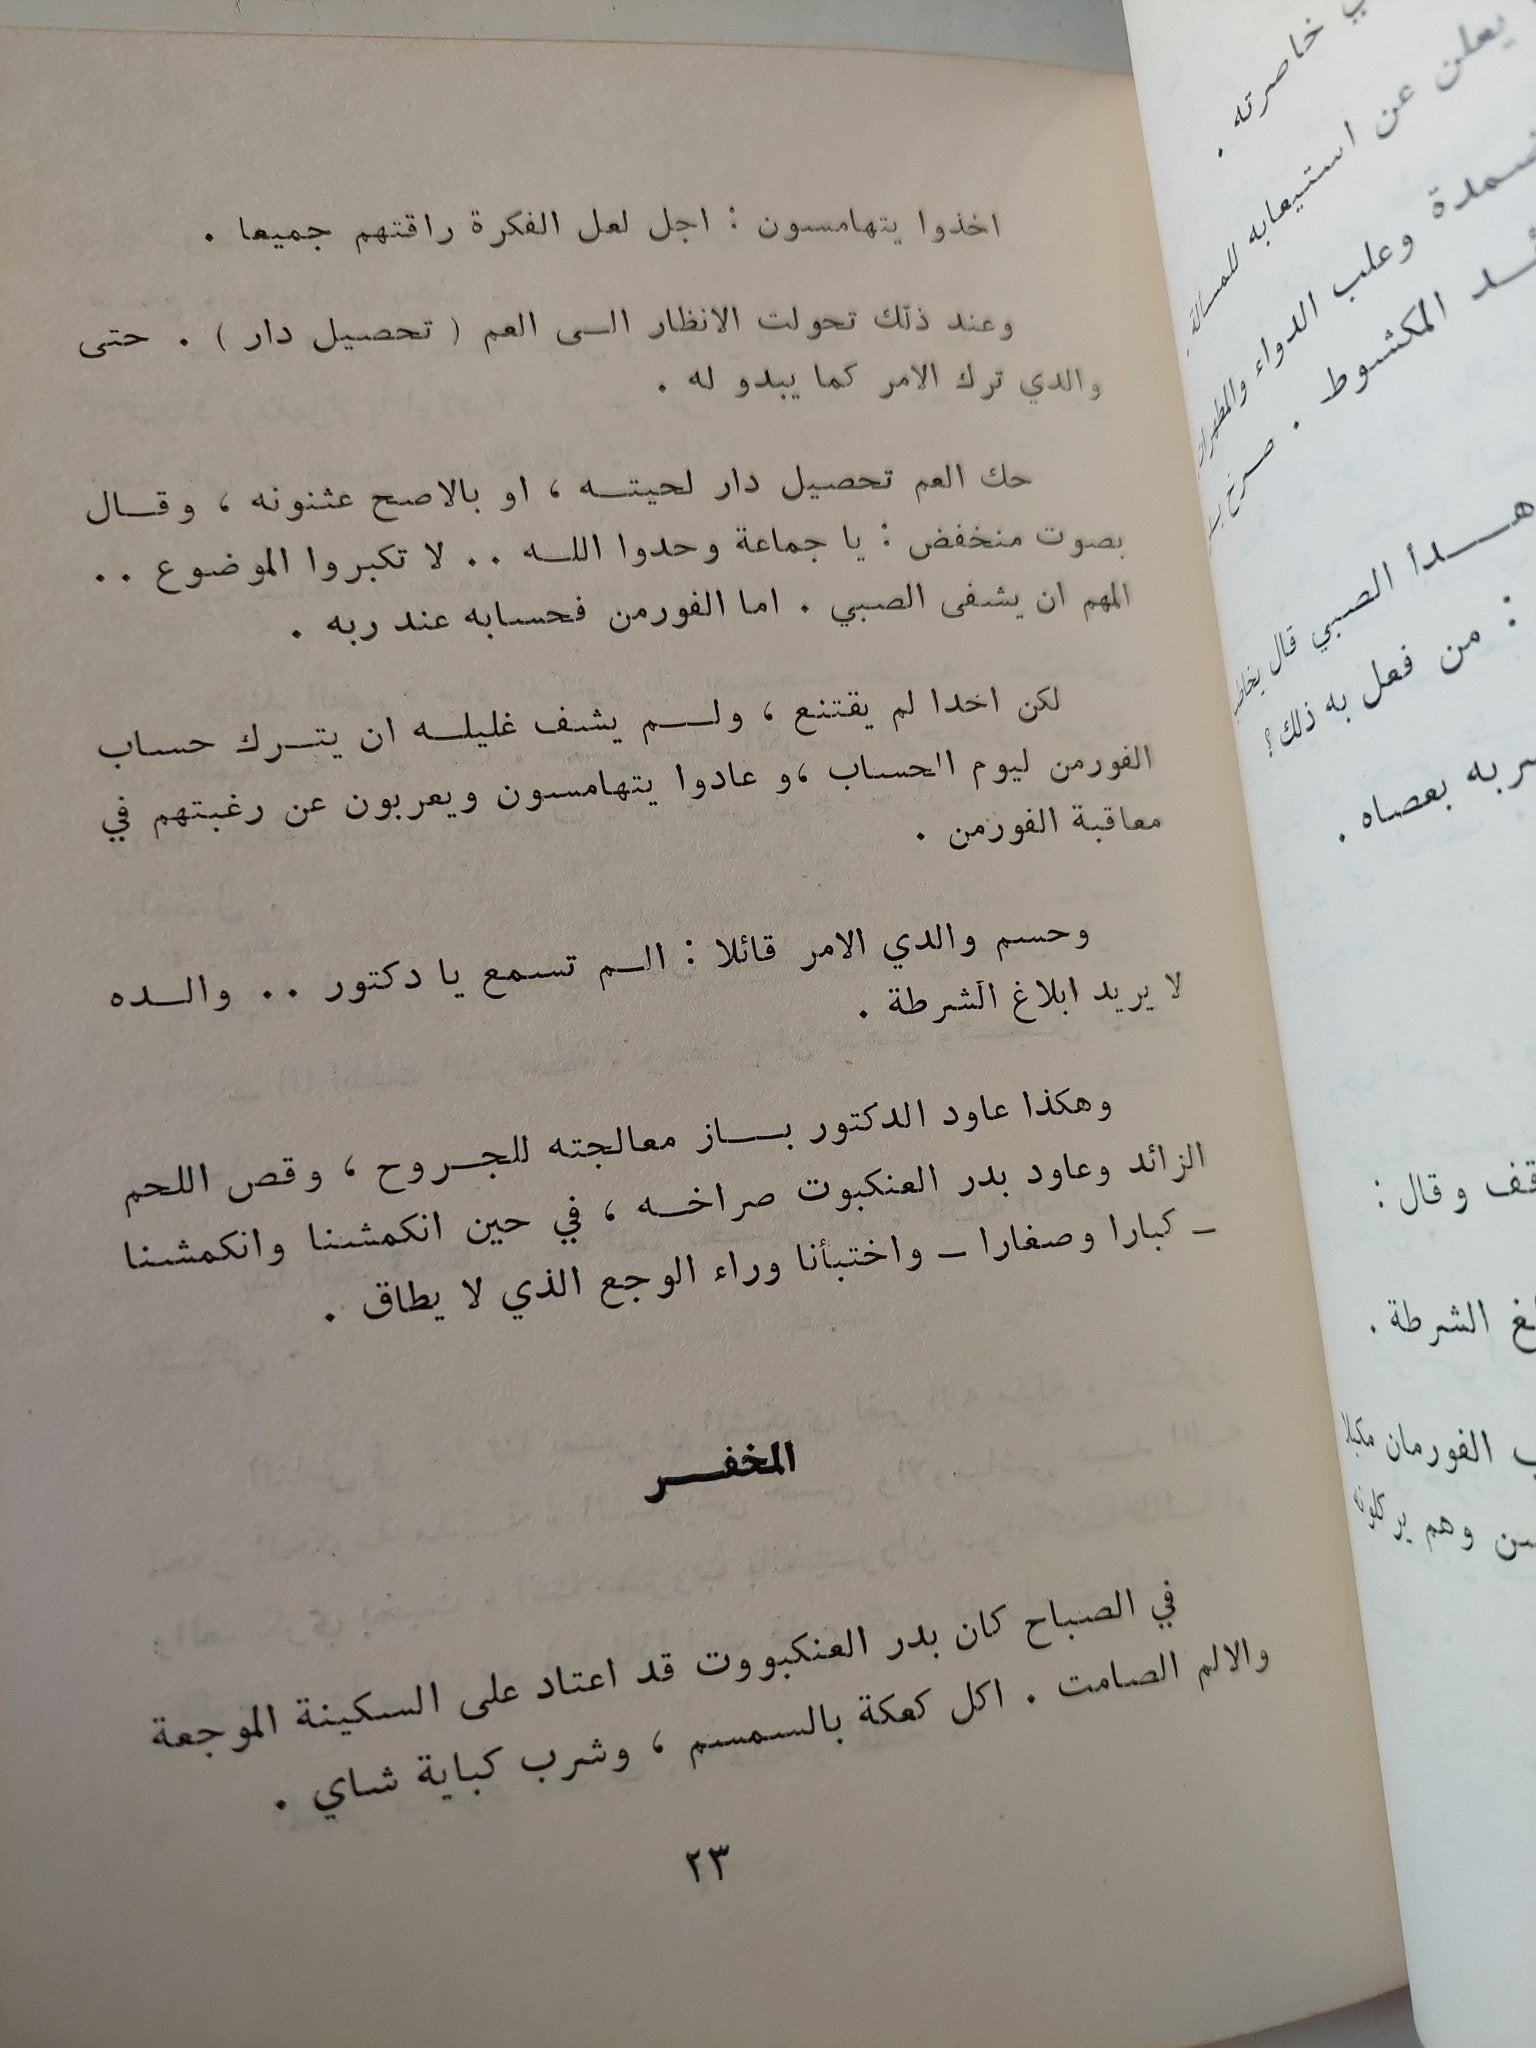 اخذوا يتهامسون : اجل لعل الفكرة راقتهم جميعا .
وعند ذلك تحولت الانظار الى العم ( تحصيل دار ) . حتى
والدي ترك الامر كما يبدو له .
حك العم تحصيل دار لحيته ، او بالاصح عثنونه ، وقال
بصوت منخفض : يا جماعة وحدوا الله .. لا تكبروا الموضوع ..
المهم ان يشفى الصبي . اما الفورمن فحسابه عند ربه .
لكن احدا لم يقتنع ، ولم يشف غليله ان يترك حساب
الفورمن ليوم الحساب ،و عادوا يتهامسون ويعربون عن رغبتهم في
معاقبة الفورمن .
وحسم والدي الامر قائلا : الم تسمع يا دكتور .. والده
لا يريد ابلاغ الشرطة .
وهكذا عاود الدكتور باز معالجته للجروح ، وقص اللحم
الزائد وعاود بدر العنكبوت صراخه ، في حين انكمشنا وانكمشنا
ـ كبارا وصغارا ـ واختبأنا وراء الوجع الذي لا يطاق .
المخفر
في الصباح كان بدر العنكبووت قد اعتاد على السكينة الموجعة
والالم الصامت . اكل كعكة بالسمسم ، وشرب كباية شاي .
٢٣
خاصرته .
يعلن عن استيعابه للمسألة
وعلب الدواء والمطهرات
المكشوط . صرخ
هدأ الصبي قال
: من فعل به ذلك؟
بعصاه .
وقال :
الشرطة .
الفورمان مكبلا
وهم يركلونه